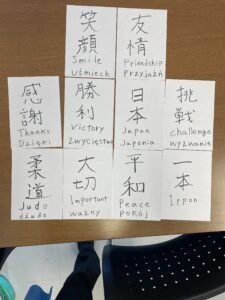 笑顔
Smile
Uśmiech
友情
Friendship
Przyjaźń
感謝
Thanks
Dzięki
勝利
Victory
Zwycięstwo
日本
Japan
Japonia
挑戦
challenge
wyzwanie
柔道
Judo
dżudo
大切
Important
ważny
平和
Peace
pokój
一本
Ippon